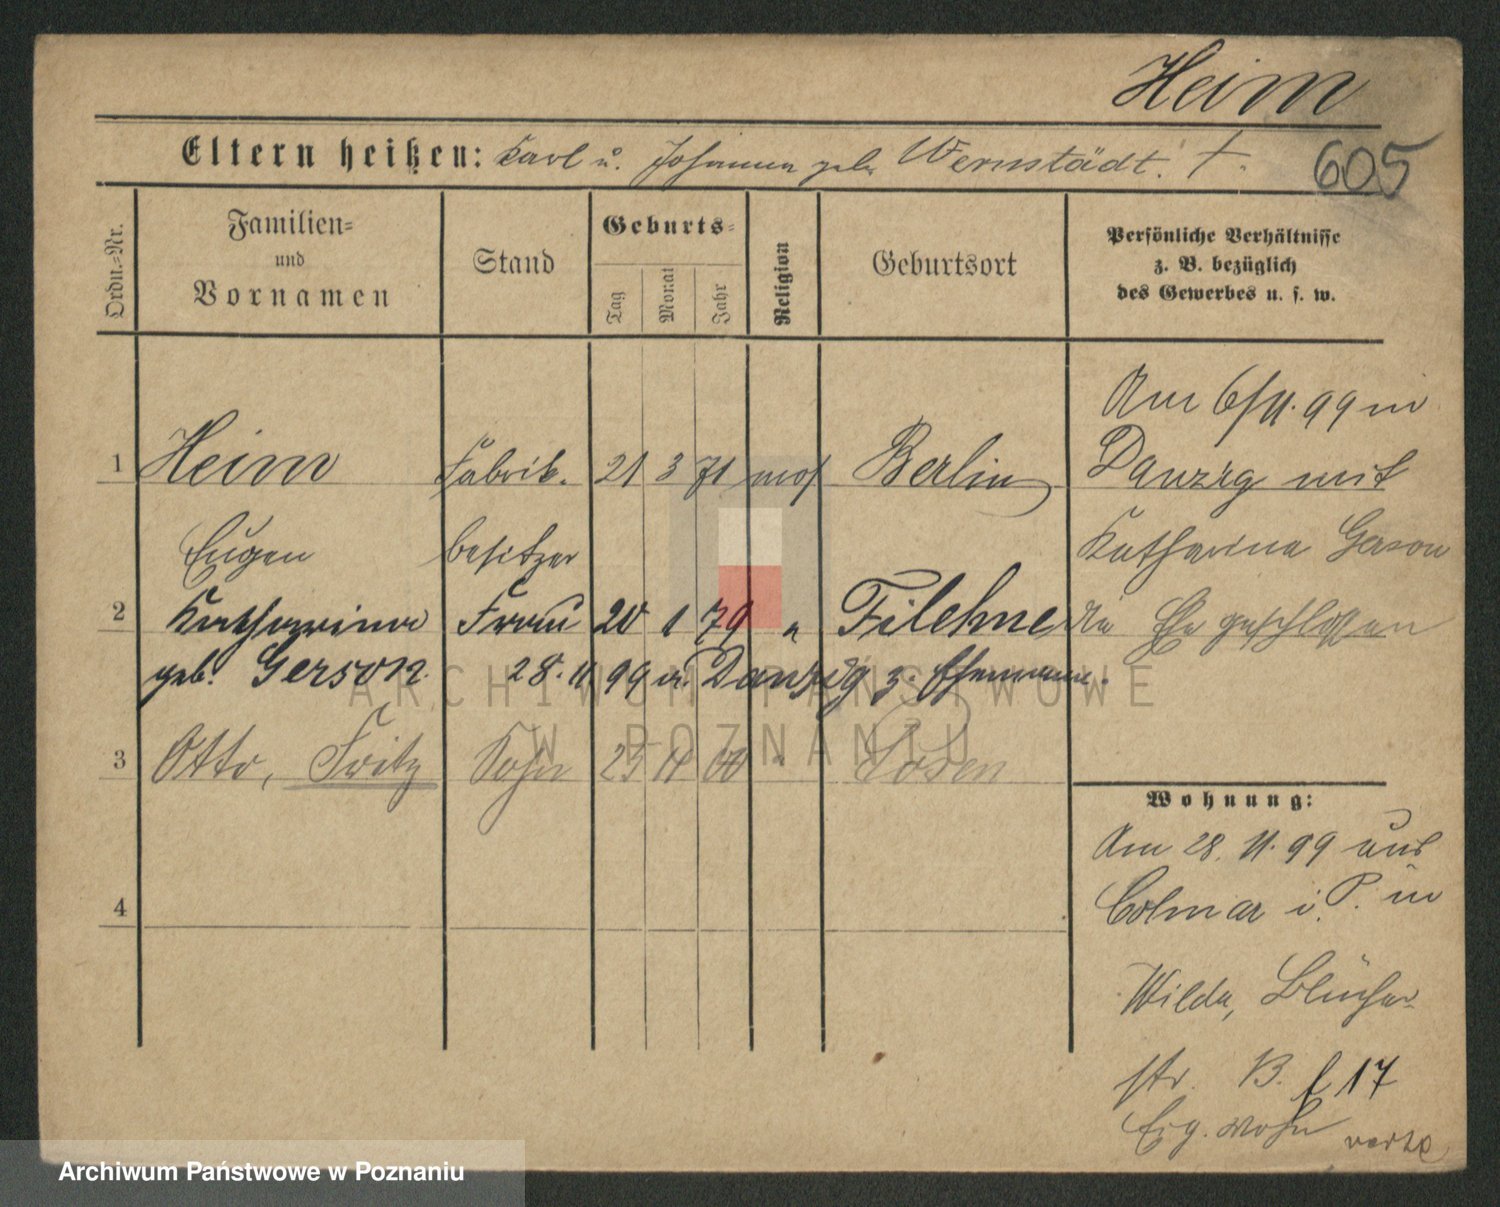 Heim
605
Eltern heißen: Karl u. Johanna geb. Wernstädt. †.
Ordn.=Nr.
Familien=
und
Vornamen
Stand
Geburts=
Tag
Monat
Jahr
Religion
Geburtsort
Persönliche Verhältnisse
z. B. bezüglich
des Gewerbes u. s. w.
1 Heim Fabrik- 21 3 71 mos Berlin
Eugen besitzer
2 Katharina Frau 20 1 79 " Filehne
geb. Gerson. 28. 11. 99 a. Danzig z. Ehemann.
3 Otto, Fritz Sohn 23 11 00 " Posen
4
Am 6/11. 99 in
Danzig mit
Katharina Gerson
die Ehe geschlossen
Wohnung:
Am 28. 11. 99 aus
Colmar i. P. in
Wilda, Blücher-
str. 17
Eig. Wohn
ARCHIWUM PAŃSTWOWE
W POZNANIU
Archiwum Państwowe w Poznaniu